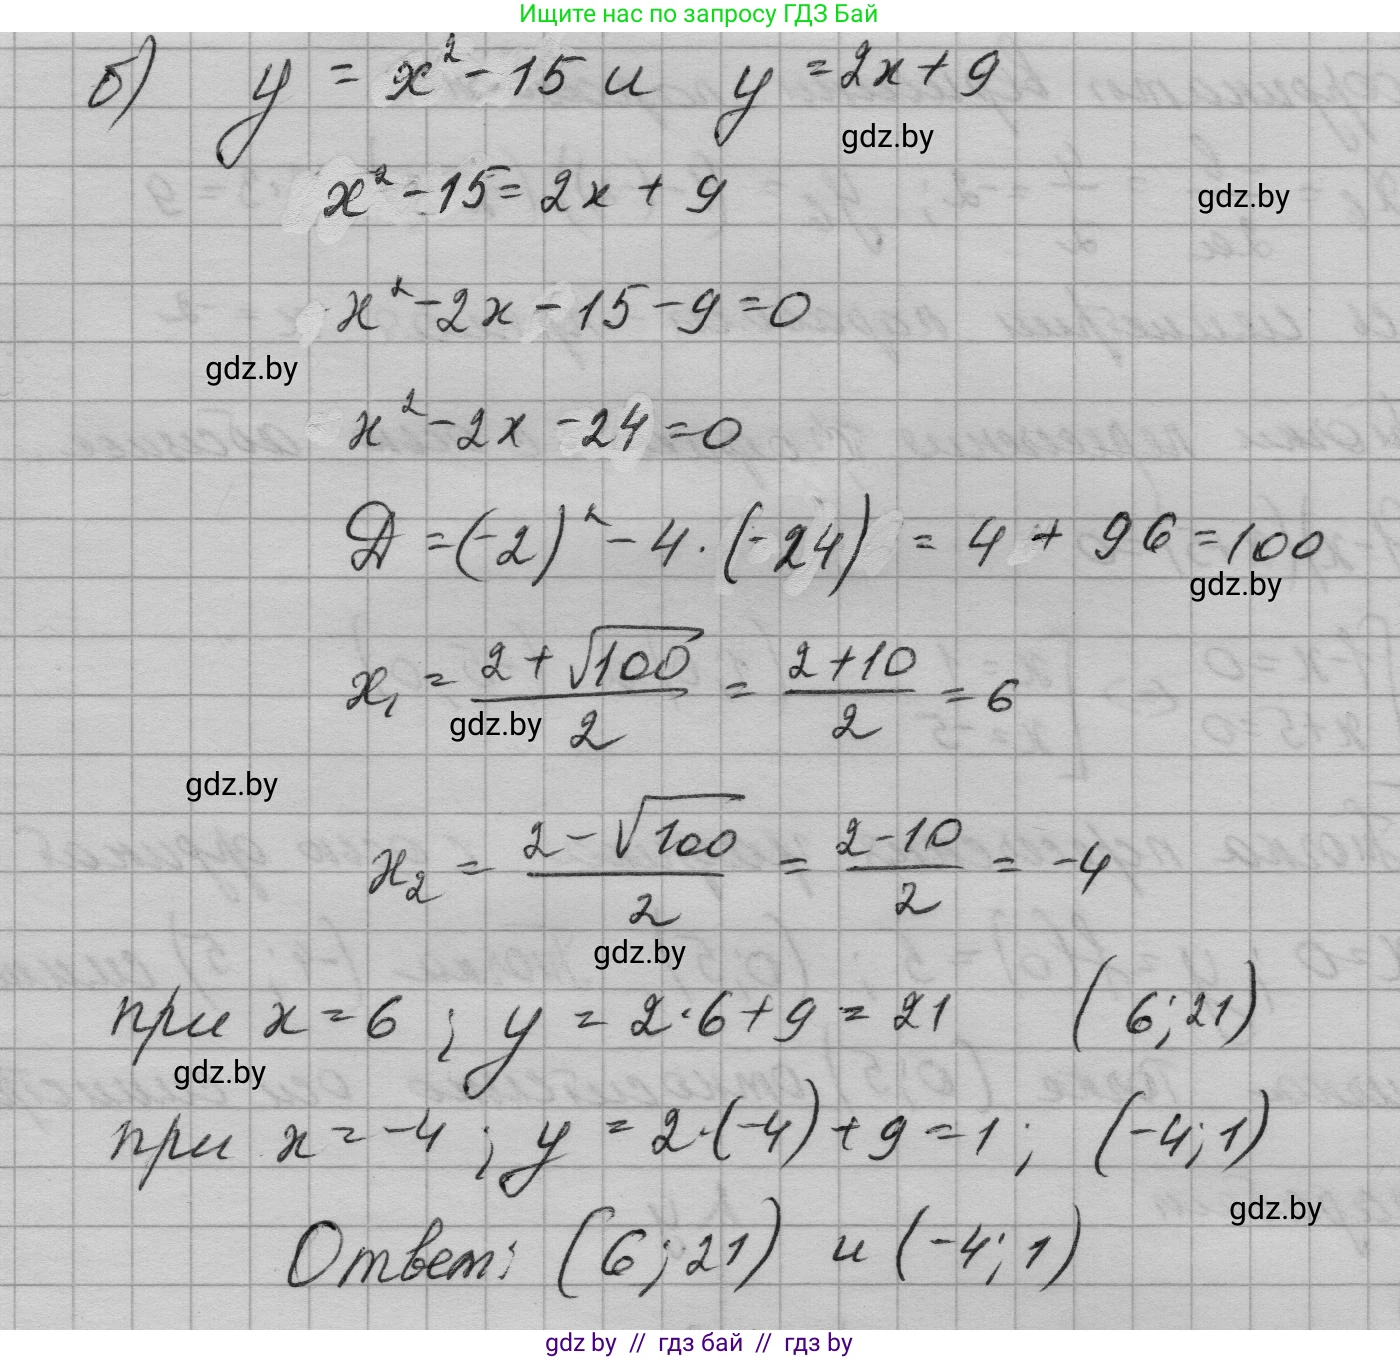 Ищите нас по запросу ГДЗ Бай
б) y = x² - 15 и y = 2x + 9
gdz.by
x² - 15 = 2x + 9
gdz.by
x² - 2x - 15 - 9 = 0
gdz.by
x² - 2x - 24 = 0
Д = (-2)² - 4 · (-24) = 4 + 96 = 100
gdz.by
x₁ = (2 + √100)/2 = (2 + 10)/2 = 6
gdz.by
gdz.by
x₂ = (2 - √100)/2 = (2 - 10)/2 = -4
gdz.by
при x = 6 ; y = 2 · 6 + 9 = 21 (6; 21)
gdz.by
при x = -4 ; y = 2 · (-4) + 9 = 1 ; (-4; 1)
gdz.by
Ответ: (6; 21) и (-4; 1)
gdz by // гдз бай // гдз by